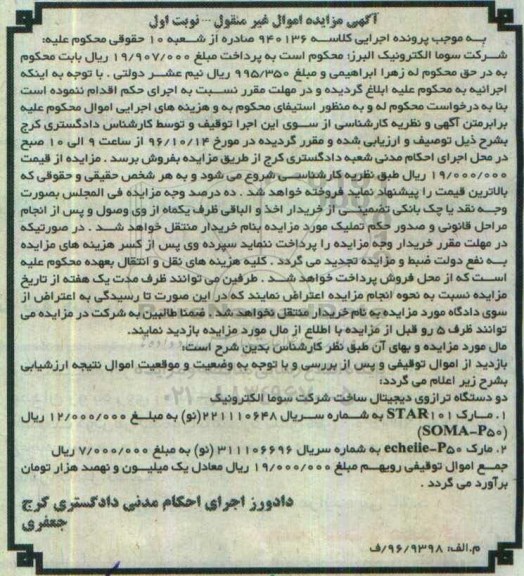 آگهی مزایده اموال غیر منقول ... نوبت اول
به موجب پرونده اجرایی کلاسه ۹۴۰۱۳۶ صادره از شعبه ۱۰ حقوقی محکوم علیه:
شرکت سوما الکترونیک البرز: محکوم است به پرداخت مبلغ ۱۹/۹۰۷/۰۰۰ ریال بابت محکوم
به در حق محکوم له زهرا ابراهیمی و مبلغ ۹۹۵/۳۵۰ ریال نیم عشر دولتی . با توجه به اینکه
اجرائیه به محکوم علیه ابلاغ گردیده و در مهلت مقرر نسبت به اجرای حکم اقدام ننموده است
بنا به درخواست محکوم له و به منظور استیفای محکوم به و هزینه های اجرایی اموال محکوم علیه
برابرمتن آگهی و نظریه کارشناسی از سوی این اجرا توقیف و توسط کارشناس دادگستری کرج
بشرح ذیل توصیف و ارزیابی شده و مقرر گردیده در مورخ ۹۶/۱۰/۱۴ از ساعت ۹ الی ۱۰ صبح
در محل اجرای احکام مدنی شعبه دادگستری کرج از طریق مزایده بفروش برسد . مزایده از قیمت
۱۹/۰۰۰/۰۰۰ ریال طبق نظریه کارشناسی شروع می شود و به هر شخص حقیقی و حقوقی که
بالاترین قیمت را پیشنهاد نماید فروخته خواهد شد . ده درصد وجه مزایده فی المجلس بصورت
وجه نقد یا چک بانکی تضمینی از خریدار اخذ و الباقی ظرف یکماه از وی وصول و پس از انجام
مراحل قانونی و صدور حکم تملیک مورد مزایده بنام خریدار منتقل خواهد شد . در صورتیکه
در مهلت مقرر خریدار وجه مزایده را پرداخت ننماید سپرده وی پس از کسر هزینه های مزایده
به نفع دولت ضبط و مزایده تجدید می گردد . کلیه هزینه های نقل و انتقال بعهده محکوم علیه
است که از محل فروش پرداخت خواهد شد . طرفین می توانند ظرف مدت یک هفته از تاریخ
مزایده نسبت به نحوه انجام مزایده اعتراض نمایند که در این صورت تا رسیدگی به اعتراض از
سوی دادگاه مورد مزایده به نام خریدار منتقل نخواهد شد . ضمنا طالبین به شرکت در مزایده می
توانند ظرف ۵ روز قبل از مزایده با اطلاع از مال مورد مزایده بازدید نمایند.
مال مورد مزایده و بهای آن طبق نظر کارشناس بدین شرح است:
بازدید از اموال توقیفی و پس از بررسی و با توجه به وضعیت و موقعیت اموال نتیجه ارزشیابی
بشرح زیر اعلام می گردد:
دو دستگاه ترازوی دیجیتال ساخت شرکت سوما الکترونیک
۱. مارک STAR۱۰۱ به شماره سریال ۲۲۱۱۱۰۶۴۸(نو) به مبلغ ۱۲/۰۰۰/۰۰۰ ریال
(SOMA-P۵۰)
۲. مارک echelie-P۵۰ به شماره سریال ۳۱۱۱۰۶۶۹۶ (نو) به مبلغ ۷/۰۰۰/۰۰۰ ریال
جمع اموال توقیفی رویهم مبلغ ۱۹/۰۰۰/۰۰۰ ریال معادل یک میلیون و نهصد هزار تومان
برآورد می گردد .
دادورز اجرای احکام مدنی دادگستری کرج
جعفری
م.الف: ۹۶/۹۳۹۸/ف